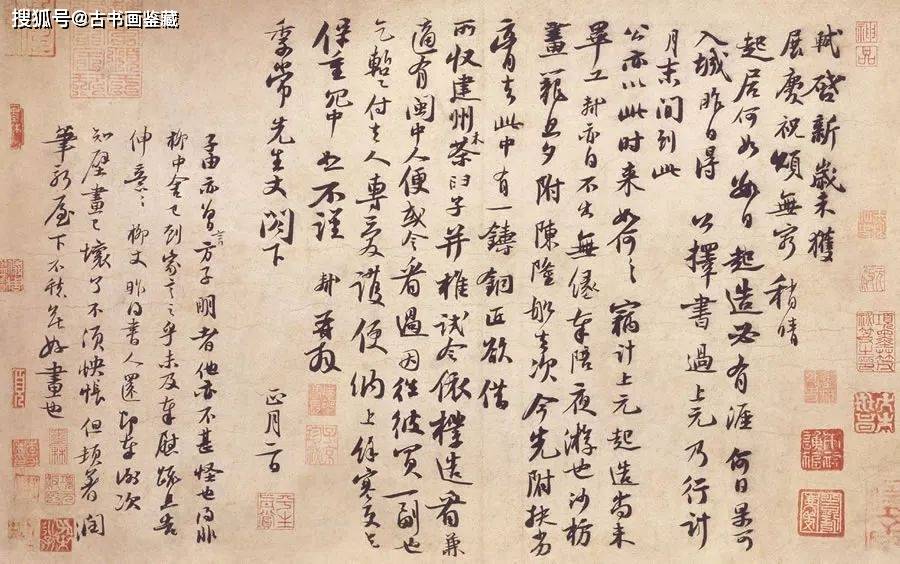 搜狐号@古书画鉴藏
軾啓新歲未獲
展慶祝頌無窮稍晴
起居何如數日起造必有涯何日果可
入城昨日得 公擇書過上元乃行計
月末間到此
公亦以此時來如何々竊計上元起造尚未
畢工軾亦自不出無緣奉陪夜游也沙枋
畫籠旦夕附陳隆船去次今先附扶劣
膏去此中有一鑄銅匠欲借
所收建州木茶臼子并椎試令依樣造看兼
適有閩中人便或令看過因往彼買一副也
乞暫付去人專愛護便納上餘寒更乞
保重冗中恕不謹 軾再拜
季常先生丈閣下
正月二日
子由亦曾言方子明者他亦不甚怪也得非
柳中舍已到家言之乎未及奉慰疏且告
伸意々柳丈昨得書人還即奉謝次
知壁畫已壞了不須怏悵但頓著潤
筆新屋下不愁無好畫也
神品
平生真賞